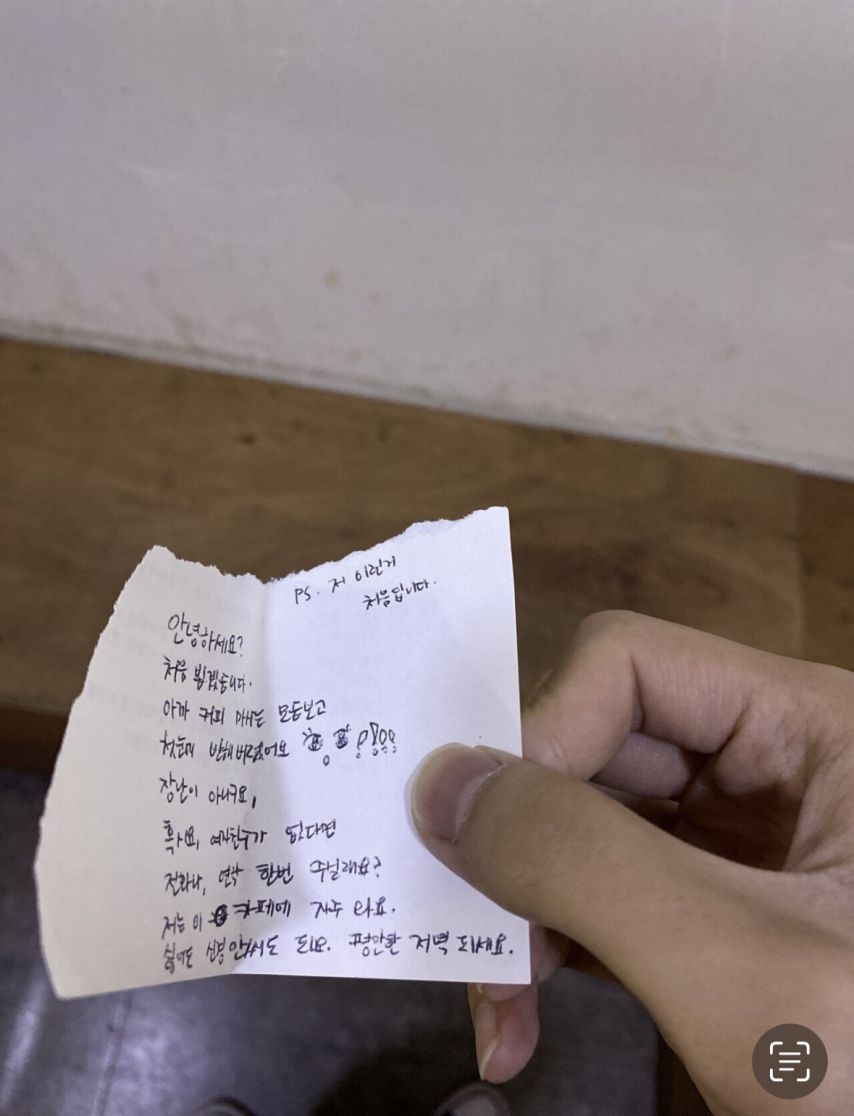 PS. 저 이런거
처음입니다.
안녕하세요?
처음 뵙겠습니다.
아까 커피 마시는 모습보고
첫눈에 반해버렸어요
장난이 아니구요,
혹시요, 여자친구가 없다면
전화나, 연락 한번 주실래요?
저는 이 카페에 자주 와요.
싫어도 신경 안써도 되요. 평안한 저녁 되세요.